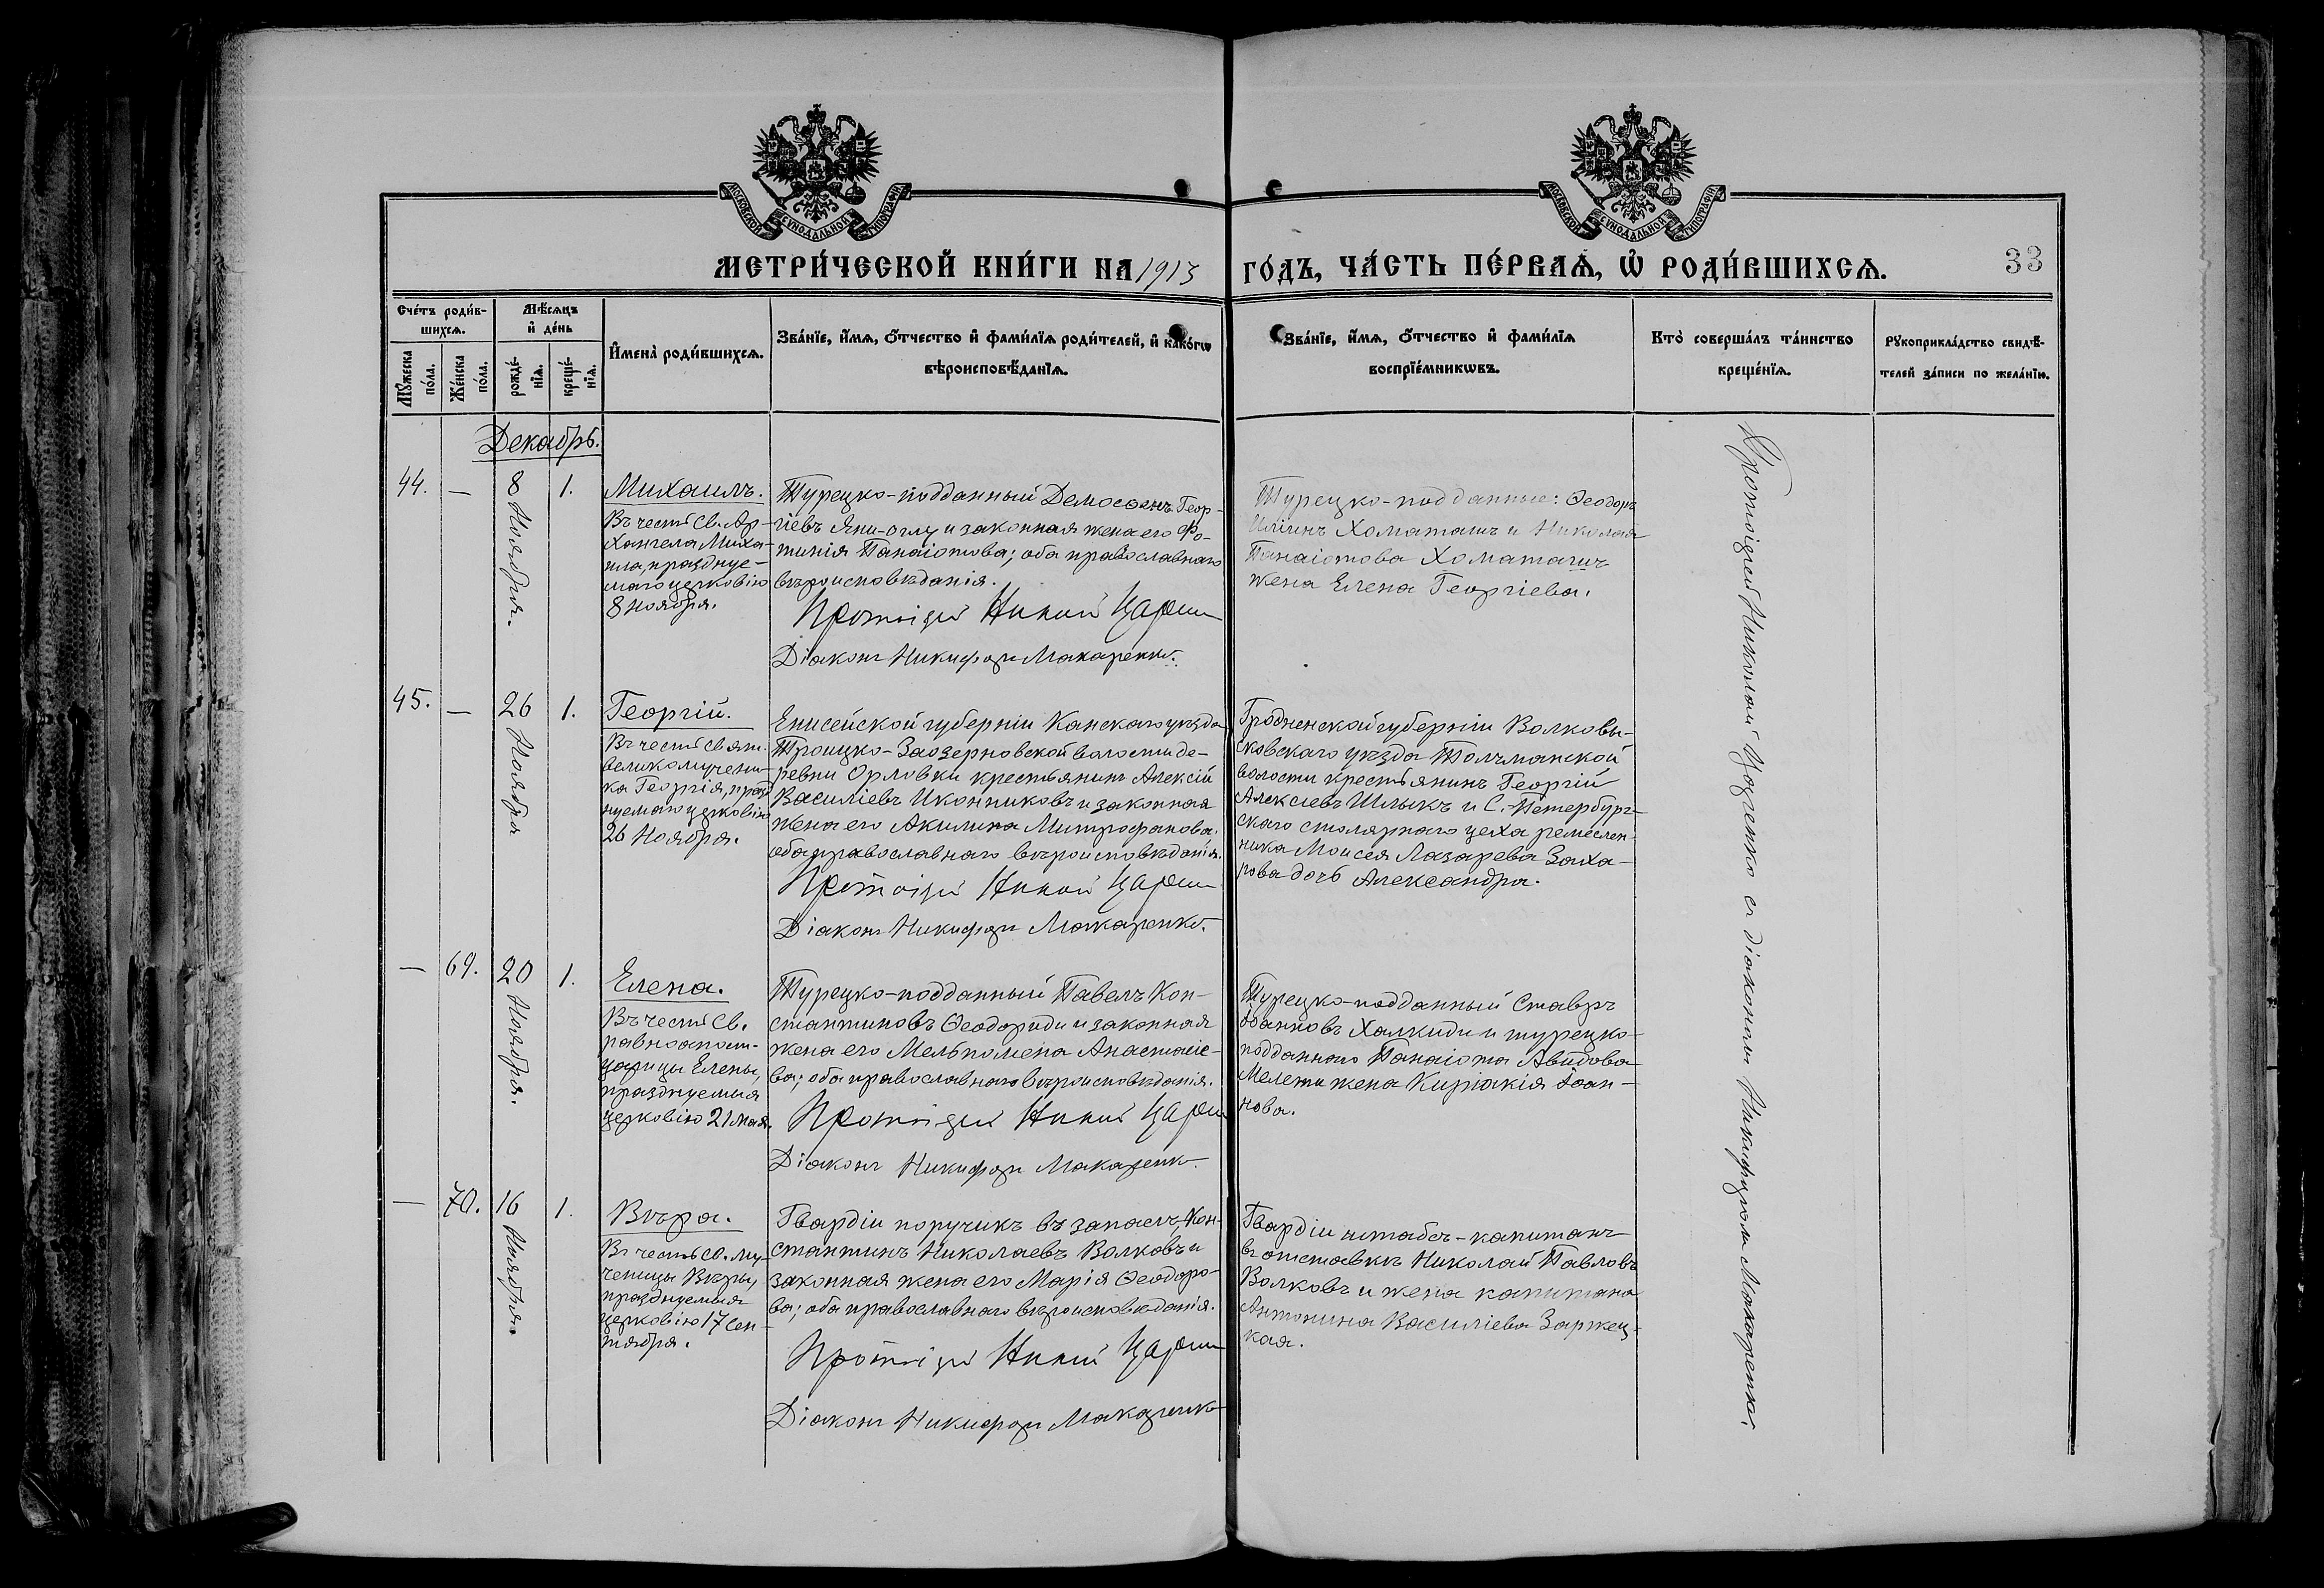 МОСКОВСКОЙ СѴНОДАЛЬНОЙ ТИПОГРАФІИ
МОСКОВСКОЙ СѴНОДАЛЬНОЙ ТИПОГРАФІИ
МЕТРИ́ЧЕСКОЙ КНИ́ГИ НА 1913
ГО́ДЪ, ЧА́СТЬ ПЕ́РВАѦ, Ѡ҆ РОДИ́ВШИХСѦ.
33
Сче́тъ роди́в-
шихсѧ.
Мѣ́сѧцъ
и҆ де́нь
Мꙋ́жеска
по́ла.
Же́нска
по́ла.
рожде́-
нїѧ.
креще́-
нїѧ.
И҆мена̀ роди́вшихсѧ.
Зва́нїе, и҆́мѧ, ѻ҆́тчество и҆ фами́лїѧ роди́телей, и҆ како́гѡ
вѣроисповѣ́данїѧ.
Зва́нїе, и҆́мѧ, ѻ҆́тчество и҆ фами́лїѧ
воспрїе́мникѡвъ.
Кто̀ соверша́лъ та́инство
креще́нїѧ.
Рꙋкоприкла́дство свидѣ́-
телей за́писи по жела́нїю.
Декабрь.
44.
—
8 Ноября.
1.
Михаилъ.
Въ честь Св. Ар-
хангела Миха-
ила, празднуе-
маго церковію
8 ноября.
Турецко-подданный Демосѳенъ Геор-
гіевъ Яни-оглу и законная жена его Фо-
тинія Панаіотова; оба православнаго
вѣроисповѣданія.
Протоіерей Николай
Діаконъ Никифоръ Макаренко.
Турецко-подданные: Ѳеодоръ
Иліинъ Хоматашъ и Николая
Панаіотова Хоматашъ
жена Елена Георгіева.
45.
—
26 Ноября
1.
Георгій.
Въ честь Свят.
великомучени-
ка Георгія, празд-
нуемаго церковію
26 Ноября.
Енисейской губерніи Канскаго уѣзда
Троицко-Заозерновской волости де-
ревни Орловки крестьянинъ Алексій
Василіевъ Иконниковъ и законная
жена его Акилина Митрофанова;
оба православнаго вѣроисповѣданія.
Протоіерей Николай
Діаконъ Никифоръ Макаренко.
Гродненской губерніи Волковы-
сковскаго уѣзда Толчманской
волости крестьянинъ Георгій
Алексіевъ Шлыкъ и С.-Петербург-
скаго столярнаго цеха ремеслен-
ника Моисея Лазарева Заха-
рова дочь Александра.
—
69.
20 Ноября.
1.
Елена.
Въ честь Св.
равноапост.
царицы Елены,
празднуемыя
церковію 21 мая.
Турецко-подданный Павелъ Кон-
стантиновъ Ѳеодориди и законная
жена его Мельпомена Анастасіе-
ва; оба православнаго вѣроисповѣданія.
Протоіерей Николай
Діаконъ Никифоръ Макаренко.
Турецко-подданный Ставръ
Іоанновъ Халкиди и турецко-
подданнаго Панаіота Авидова
Мелети жена Киріакія Іоан-
нова.
—
70.
16 Ноября.
1.
Вѣра.
Въ честь св. му-
ченицы Вѣры,
празднуемыя
церковію 17 Сен-
тября.
Гвардіи поручикъ въ запасѣ, Кон-
стантинъ Николаевъ Волковъ и
законная жена его Марія Ѳеодоро-
ва; оба православнаго вѣроисповѣданія.
Протоіерей Николай
Діаконъ Никифоръ Макаренко
Гвардіи штабсъ-капитанъ
въ отставкѣ Николай Павловъ
Волковъ и жена капитана
Антонина Василіева Заржец-
кая.
Протоіерей Николай съ діакономъ Никифоромъ Макаренко.